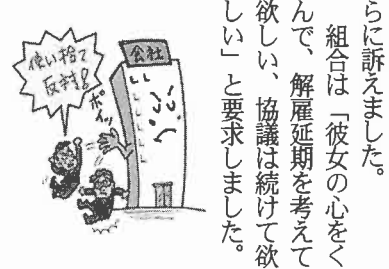 らに訴えました。
組合は「彼女の心をく
んで、解雇延期を考えて
欲しい、協議は続けて欲
しい」と要求しました。
会社
ポイッ
使い捨て
反対!